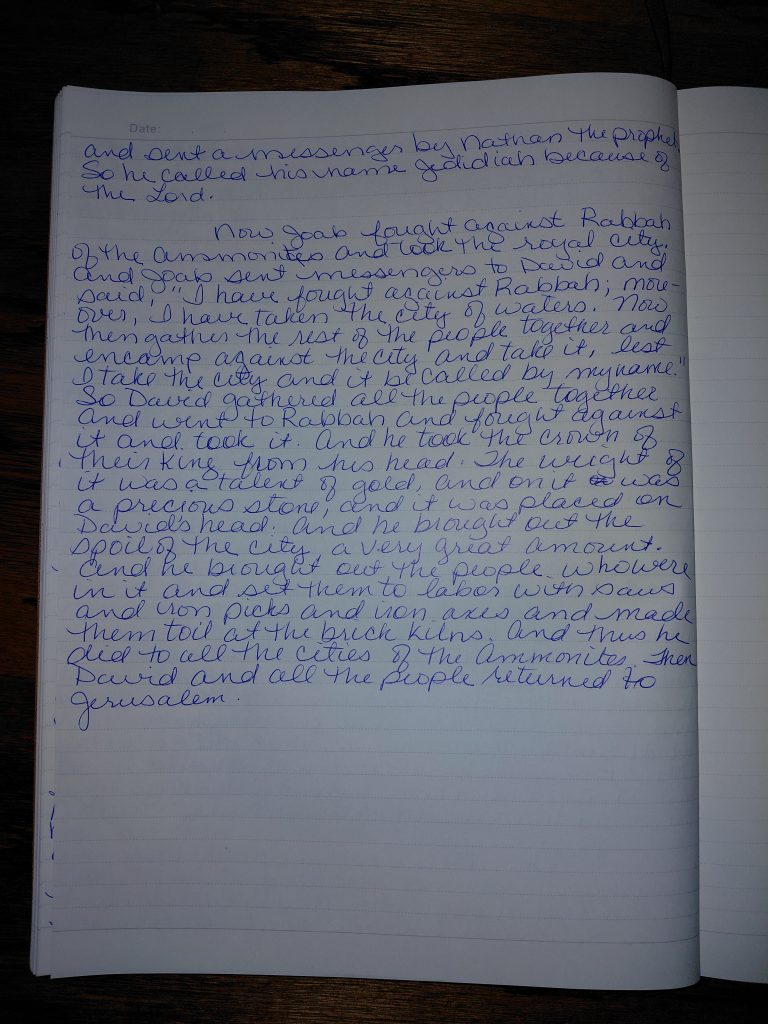 Date:
and sent a messenger by Nathan the prophet
So he called his name Jedidiah because of
the Lord.
Now Joab fought against Rabbah
of the Ammonites and took the royal city.
And Joab sent messengers to David and
said, "I have fought against Rabbah; more-
over, I have taken the city of waters. Now
then gather the rest of the people together and
encamp against the city and take it, lest
I take the city and it be called by my name."
So David gathered all the people together
and went to Rabbah and fought against
it and took it. And he took the crown of
their King from his head. The weight of
it was a talent of gold, and on it was
a precious stone, and it was placed on
David's head. And he brought out the
spoil of the city, a very great amount.
And he brought out the people who were
in it and set them to labor with saws
and iron picks and iron axes and made
them toil at the brick kilns. And thus he
did to all the cities of the Ammonites. Then
David and all the people returned to
Jerusalem.